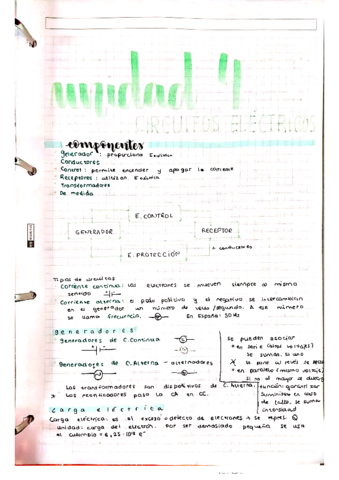 unidad 4
CIRCUITOS ELÉCTRICOS
componentes
Generador: proporciona E eléctrica
Conductores
Control: permite encender y apagar la corriente
Receptores: utilizan E eléctrica
Transformadores
De medida
E. CONTROL
GENERADOR
RECEPTOR
E. PROTECCIÓN
conductores
Tipos de circuitos
Corriente continua: los electrones se mueven siempre al mismo
sentido
Corriente alterna: el polo positivo y el negativo se intercambian
en el generador un número de veces/segundo. A ese número
se llama frecuencia. En España: 50Hz
generadores
Generadores de C. Continua
Generadores de C. Alterna - alternadores
Se pueden asociar
en serie
se suman
en paralelo (mismo voltaje)
Los transformadores son dispositivos de C. Alterna.
Los rectificadores pasa la CA en CC.
Función: garantizar
suministro en caso
de fallo. Se suma
intensidad
Carga eléctrica
Carga eléctrica: es el exceso o defecto de electrones
Unidad: carga del electrón. Por ser demasiado pequeña se usa
el culombio = 6,25·10¹⁸ e⁻